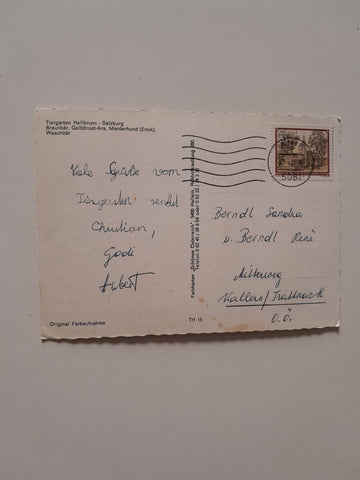 Tiergarten Hellbrunn - Salzburg
Braunbär, Gelbbrust-Ara, Marderhund (Enok),
Waschbär
Viele Grüße vom
Tiergarten sendet
Christian,
Godi
Hubert
Original Farbaufnahme
TH 15
Farbkarten „Schönes Österreich“ 5400 Hallein,
5081
Berndl Sandra
u. Berndl René
Mitterweg
Wallern/Trattnach
O.Ö.